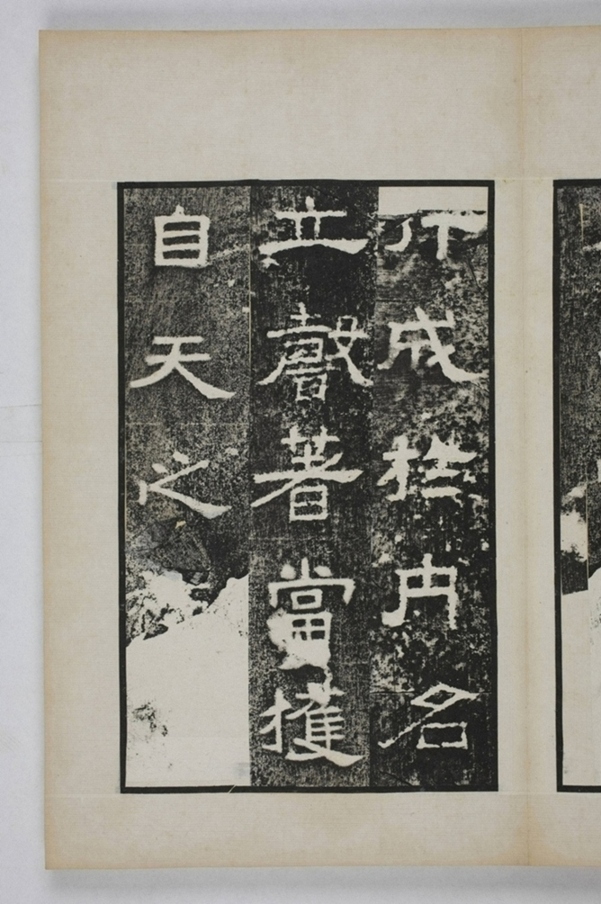 行成扵内名
立聲著當獲
自天之